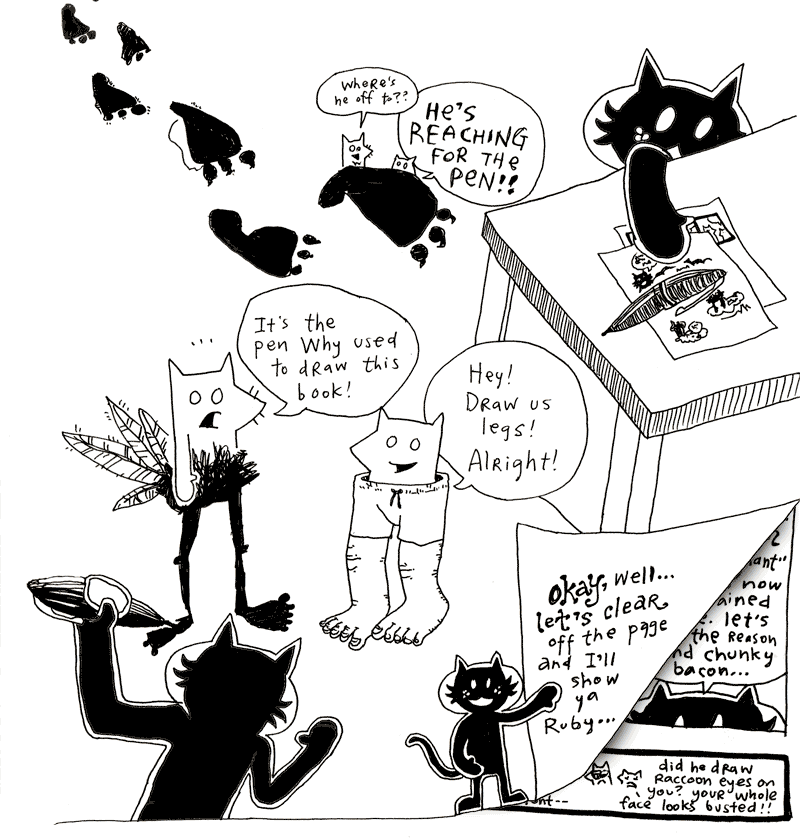 Where's
he off to??
He's
REACHING
FOR THE
PEN!!
It's the
pen Why used
to draw this
book!
Hey!
Draw us
legs!
Alright!
okay, well...
let's clear
off the page
and I'll
show
ya
Ruby...
ant"
now
ained
let's
the Reason
nd chunky
bacon...
did he draw
Raccoon eyes on
you? your whole
face looks busted!!